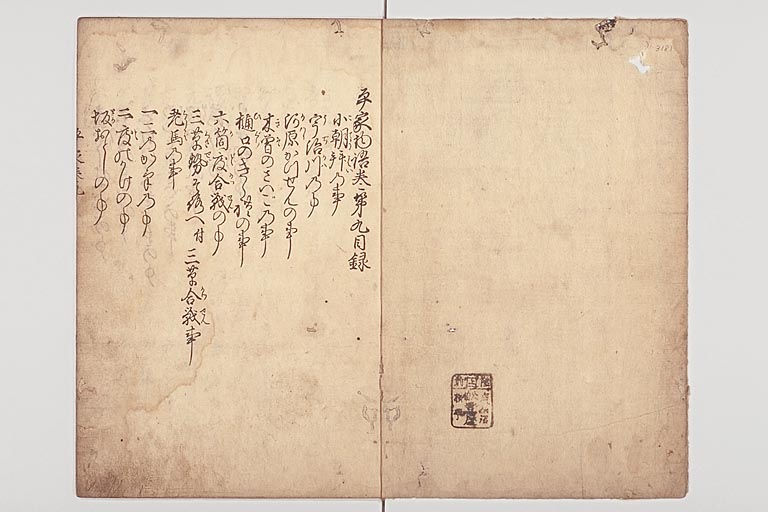 平家物語巻第九目録
小朝拝乃事
宇治川乃事
河原かつせんの事
木曽のさいご乃事
樋口のきられの事
六箇度合戦の事
三草勢そろへ付 三草合戦事
老馬乃事
一二乃かけ乃事
二度のかけの事
坂おとしの事